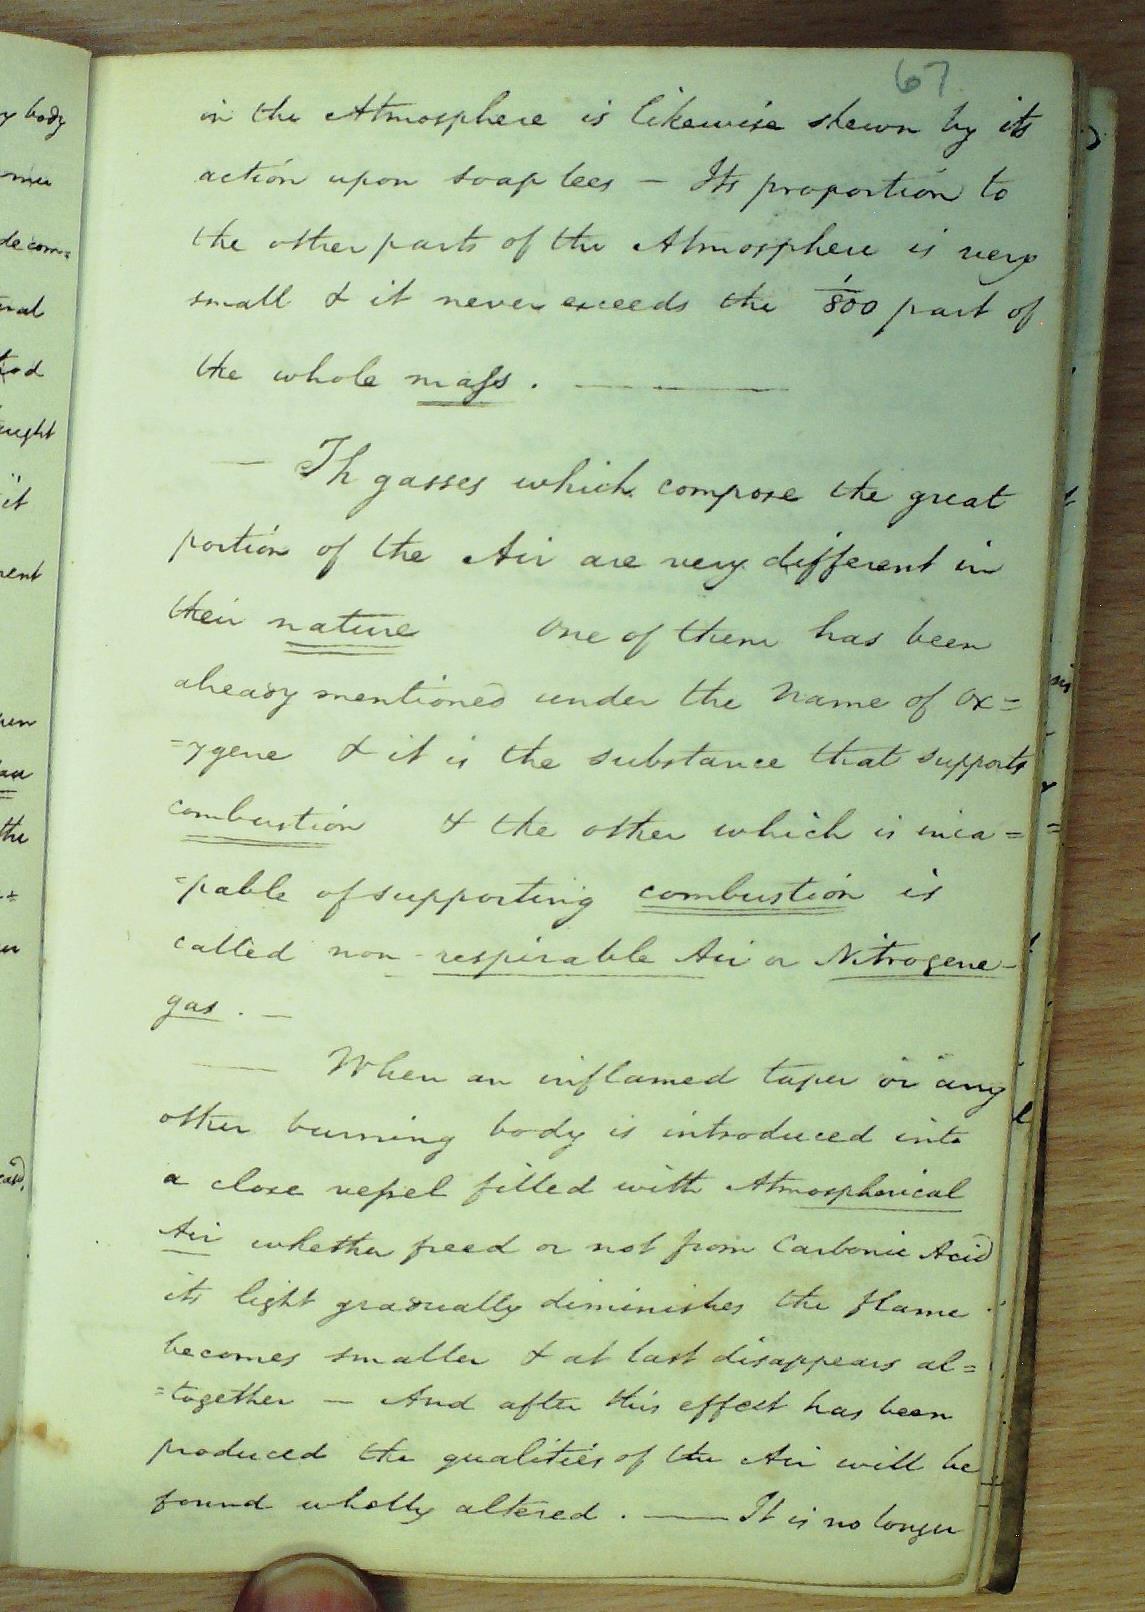 67
in the Atmosphere is likewise shewn by its
action upon soap lees — Its proportion to
the other parts of the Atmosphere is very
small & it never exceeds the 1/800 part of
the whole mass . — —
— Th gasses which compose the great
portion of the Air are very different in
their nature One of them has been
already mentioned under the Name of Ox=
=ygene & it is the substance that supports
combustion & the other which is inca=
=pable of supporting combustion is
called non-respirable Air or Nitrogene-
gas . —
— When an inflamed taper or any
other burning body is introduced into
a close vessel filled with Atmospherical
Air whether freed or not from Carbonic Acid
its light gradually diminishes the flame
becomes smaller & at last disappears al=
=together — And after this effect has been
produced the qualities of the Air will be
found wholly altered . — It is no longer